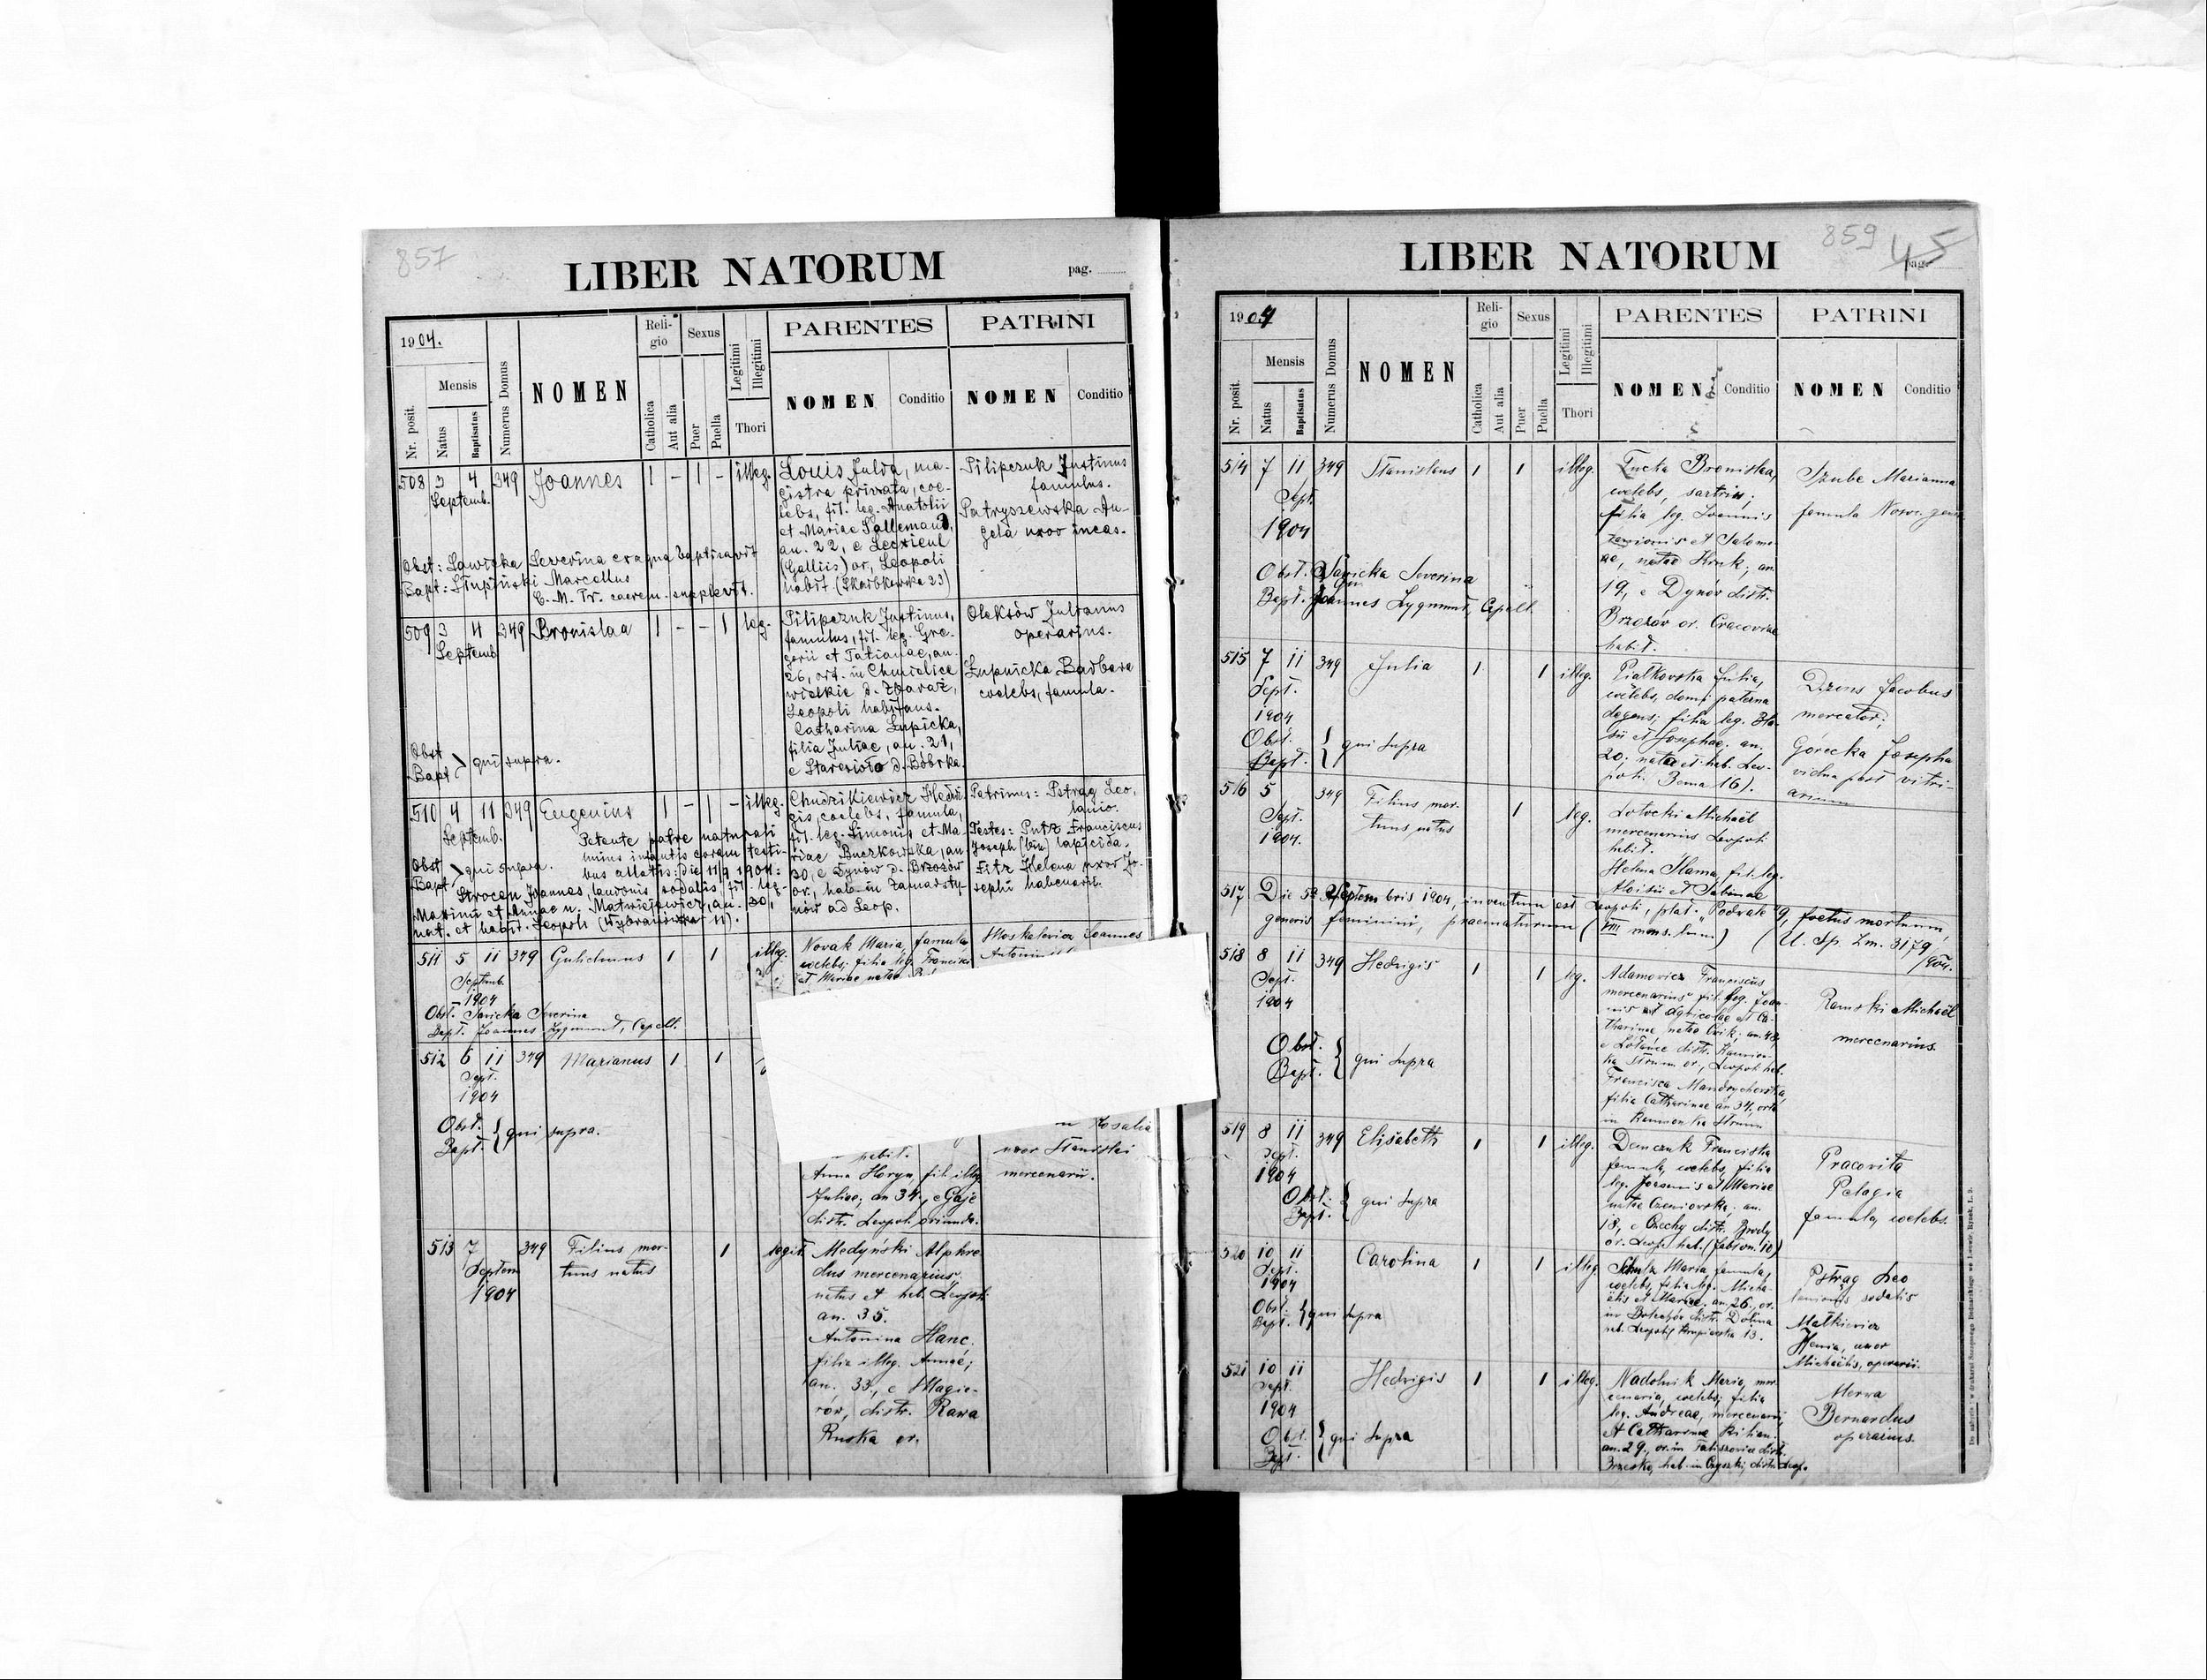 857
LIBER NATORUM
pag.
1904.
Mensis
Nr. posit.
Natus
Baptisatus
Numerus Domus
NOMEN
Religio
Catholica
Aut alia
Sexus
Puer
Puella
Legitimi
Illegitimi
Thori
PARENTES
NOMEN
Conditio
PATRINI
NOMEN
Conditio
508 3 4 349 Joannes 1 - 1 - illeg.
Septemb.
Louis Julda, ma-
gistra privata, coe-
lebs, fil. leg. Anatolii
et Mariae Lallemand,
an. 22, e
(Galliis) or, Leopoli
habit (Skarbkowska 23)
Pilipczuk Justinus
famulus.
Patryszewska An-
gela uxor incas.
Obst: Sawicka Severina ex aqua baptisavit
Bapt: Stupiński Marcellus
C. M. Pr. caerem. supplevit.
509 3 4 349 Bronislaa 1 - - 1 leg.
Septemb
Pilipczuk Justinus,
famulus, fil. leg. Gre-
gorii et Tatianae, an.
26, ort. in Chmielice
wielkie d. Zbaraż,
Leopoli habitans.
Catharina Lupicka,
filia Juliae, an. 21,
e Staresioło d. Bóbrka.
Oleksów Julianus
operarius.
Łupnicka Barbara
coelebs, famula.
Obst
Bapt } qui supra.
510 4 11 349 Eugenius 1 - 1 - illeg.
Septemb.
Chudzikiewicz Hedvi-
gis, coelebs, famula,
fil. leg. Simonis et Ma-
riae Buczkowska, an
30, e Dynów d. Brzozów
or., hab. in Zamarsty-
nów ad Leop.
Patrinus: Pstrąg Leo,
lanio.
Testes: Putz Franciscus
Joseph (bin) lapicida.
Fitz Helena uxor Jo-
sephi habenarii.
Petente patre naturali
huius infantis coram testi-
bus allatis: die 11/9 1904:
Obst
Bapt } qui supra.
Strocen Joannes, laudonis sodalis, fil. leg.
Maximi et Annae n. Matwiejewicz, an. 30,
nat. et habit. Leopoli (Wybranowska 11).
511 5 11 349 Gulielmus 1 1 illeg.
Septemb.
1904
Novak Maria, famula
coelebs; filia leg. Francisci
et Mariae natae
Moskalewicz Joannes
Obst. Savicka Severina
Bapt. Joannes Zygmunt, Capell.
512 6 11 349 Marianus 1 1
Sept.
1904
Obst.
Bapt. } qui supra.
habit.
Anna Heryn, fil. illeg
Juliae; an 34, e Gaje
distr. Leopoli oriunda.
Rosalia
uxor Stanislai
mercenarii.
513 7 349 Filius mor- 1 legit.
Septem tuus natus
1904
Medyński Alphre
dus mercenarius,
natus et hab. Leopoli
an. 35.
Antonina Hanc,
filia illeg. Annae;
an. 33, e Magie-
rów, distr. Rawa
Ruska or.
859
45
LIBER NATORUM
pag.
1904
Mensis
Nr. posit.
Natus
Baptisatus
Numerus Domus
NOMEN
Religio
Catholica
Aut alia
Sexus
Puer
Puella
Legitimi
Illegitimi
Thori
PARENTES
NOMEN
Conditio
PATRINI
NOMEN
Conditio
514 7 11 349 Stanislaus 1 1 illeg.
Sept.
1904
Bronislaa,
coelebs, sartrix;
filia leg. Joannis
et Salome-
ae, natae Hruk; an
19, e Dynów distr.
Brzozów or. Cracoviae
habit.
Szube Marianna
famula
Obst. Savicka Severina
Bapt. Joannes Zygmunt, Capell.
515 7 11 349 Julia 1 1 illeg.
Sept.
1904
Obst.
Bapt. } qui supra
Piatkovska Julia,
coelebs, domi paterna
degens; filia leg. Bla-
sii et Josephae. an.
20; nata et hab. Leo-
poli. Bema 16).
Dzons Jacobus
mercator;
Górecka Josepha
vidua post vitri-
arium
516 5 349 Filius mor- 1 leg.
Sept. tuus natus
1904.
Lotocki Michaël
mercenarius Leopoli
habit.
Helena Slama, fil. leg.
Aloisii et Salomae
517 Die 5a Septembris 1904, inventum est Leopoli, plat. "Podvale" 9, foetus mortuum,
generis feminini, praematurum (VII mens. lun.) (U. Sp. Zm. 3179/904.
518 8 11 349 Hedvigis 1 1 leg.
Sept.
1904
Obst.
Bapt. } qui supra
Adamovicz Franciscus
mercenarius fil. leg. Joan-
nis et agricolae et Ca-
tharinae natae Cxik; an. 48,
distr. Kamion-
ka Strum or., Leopoli hab.
Francisca Mandrychovska,
filia Catharinae an 34, orta
in Kamionka Strum
Ramski Michaël
mercenarius.
519 8 11 349 Elisabeth 1 1 illeg.
Sept.
1904
Obst.
Bapt. } qui supra
Demczuk Franciska
famula, coelebs, filia
leg. Joannis et Mariae
natae Czeniovska. an.
18, e Czechy distr. Brody
or. Leopo. hab.
Pracovita
Pelagia
famula, coelebs.
520 10 11 Carolina 1 1 illeg
Sept.
1904
Obst.
Bapt. } qui supra
Maria famula,
coelebs, filia leg. Micha-
ëlis et Mariae. an. 26. or.
in Bolechów distr. Dolina
hab. Leopoli 13.
Pstrąg Leo
lanionis sodalis
Matkiewicz
Xenia, uxor
Michaëlis, operarii.
521 10 11 Hedvigis 1 1 illeg.
Sept.
1904
Obst.
Bapt. } qui supra
Nadolnik Maria, mer-
cenaria, coelebs; filia
leg. Andreae, mercenarii,
et Catharinae Kilian.
an. 29., or. in distr.
Brzesko, hab. in Czyszki, distr. Leop.
Merva
Bernardus
operarius.